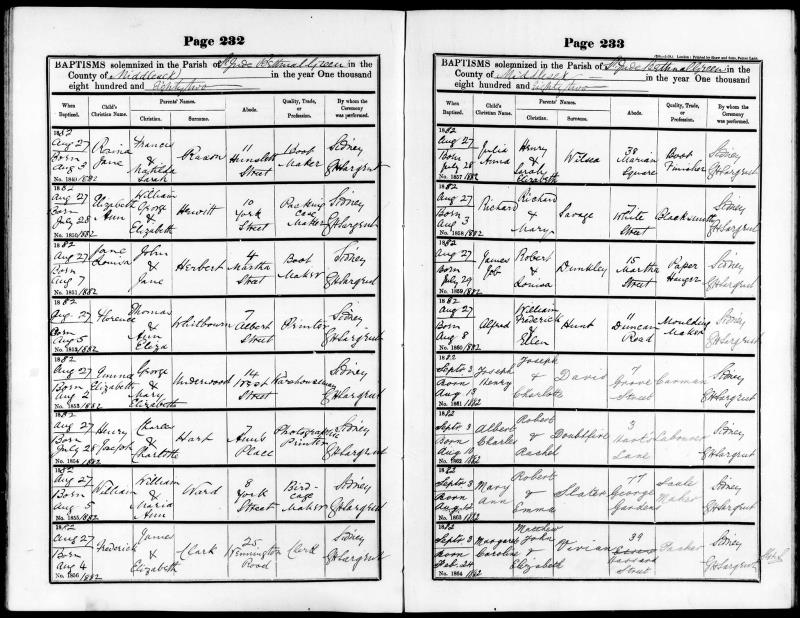 Page 232
BAPTISMS solemnized in the Parish of St Jude Bethnal Green in the
County of Middlesex in the year One thousand
eight hundred and eighty two
When Baptized. Child's Christian Name. Parents' Names. Christian. Surname. Abode. Quality, Trade, or Profession. By whom the Ceremony was performed.
1882
Aug 27 Francis 11 Boot Sidney
Born Jane & Street Maker G H Largent
Aug 3 Matilda
No. 1849/1882 Sarah
1882
Aug 27 Elizabeth William 10 Packing Sidney
Born Ann George Hewitt York case
July 28 & Street Maker G H Largent
No. 1850/1882 Elizabeth
1882
Aug 27 Jane John 4 Boot Sidney
Born Louisa & Herbert Martha Maker
Aug 7 Jane Street G H Largent
No. 1851/1882
1882
Aug 27 Florence Thomas 7 Printer Sidney
Born & Whitbourn Albert
Aug 5 Ann Street G H Largent
No. 1852/1882 Eliza
1882
Aug 27 George 14 Sidney
Born Elizabeth & Underwood West Warehouseman
Aug 2 Mary Street G H Largent
No. 1853/1882 Elizabeth
1882
Aug 27 Henry Charles 7 Photographic Sidney
Born Joseph & Hart Ann's Printer
July 28 Charlotte Place G H Largent
No. 1854/1882
1882
Aug 27 William William 8 Bird- Sidney
Born & Ward York cage
Aug 5 Maria Street Maker G H Largent
No. 1855/1882 Ann
1882
Aug 27 Frederick James 25 Clerk Sidney
Born & Clark
Aug 4 Elizabeth Road G H Largent
No. 1856/1882
Page 233
BAPTISMS solemnized in the Parish of St Jude Bethnal Green in the
County of Middlesex in the year One thousand
eight hundred and eighty two
When Baptized. Child's Christian Name. Parents' Names. Christian. Surname. Abode. Quality, Trade, or Profession. By whom the Ceremony was performed.
1882
Aug 27 Julia Henry 38 Boot Sidney
Born Anna & Wilsea Marian Finisher
July 28 Sarah Square G H Largent
No. 1857/1882 Elizabeth
1882
Aug 27 Richard Richard 7 Blacksmith Sidney
Born & Savage White
Aug 3 Mary Street G H Largent
No. 1858/1882
1882
Aug 27 James Robert 15 Paper Sidney
Born Job & Dunkley Martha Hanger
July 29 Louisa Street G H Largent
No. 1859/1882
1882
Aug 27 Alfred William 11 Moulding Sidney
Born Frederick Hunt Duncan Maker
Aug 8 & Road G H Largent
No. 1860/1882 Ellen
1882
Septr 3 Joseph Joseph 7 Carman Sidney
Born Henry & David Grove
Aug 13 Charlotte Street G H Largent
No. 1861/1882
1882
Septr 3 Albert Robert 3 Labourer Sidney
Born Charles & Doubtfire Hart's
Aug 10 Rachel Lane G H Largent
No. 1862/1882
1882
Septr 3 Mary Robert 77 Sidney
Born Ann & Slater George Maker
Emma Gardens G H Largent
No. 1863/1882
1882
Septr 3 Margaret Matthew 39 Packer Sidney
Born Caroline John Vivian
Feb. 24 & Street G H Largent
No. 1864/1882 Elizabeth